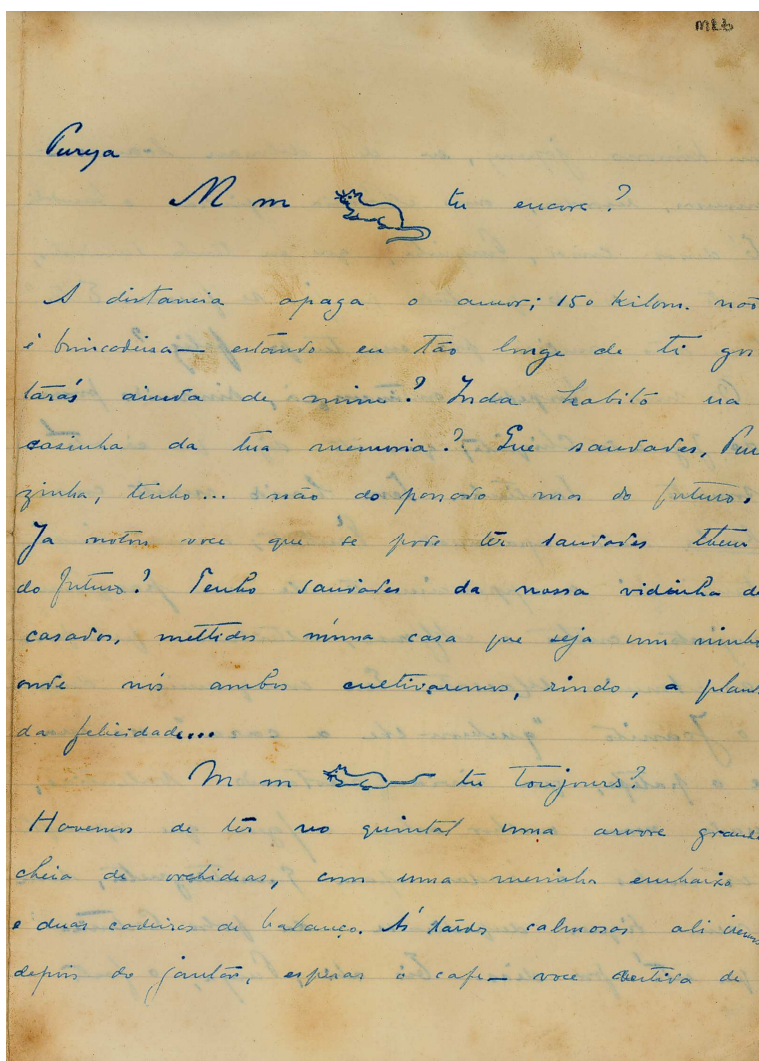 MLb
Pureza
M m tu encore?
A distancia apaga o amor; 150 kilom. não
é brincadeira — estando eu tão longe de ti gos
tarás ainda de mim? Inda habito na
casinha da tua memoria? Que saudades, Pu
rzinha, tenho... não do passado mas do futuro.
Ja notou voce que se pode ter saudades tbem
do futuro? Tenho saudades da nossa vidinha de
casados, mettidos numa casa que seja um ninho
onde nós ambos cultivaremos, rindo, a planta
da felicidade...
M m tu toujours?
Havemos de ter no quintal uma arvore grande
cheia de orchideas, com uma mesinha embaixo
e duas cadeiras de balanço. Ás tardes calmosas ali iremos
depois do jantar, esperar o café — voce vestida de